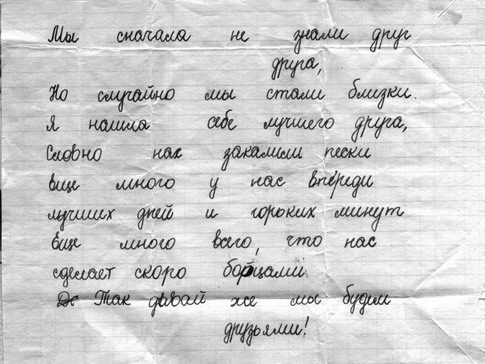 Мы сначала не знали друг
друга,
Но случайно мы стали близки.
Я нашла себе лучшего друга,
Словно нас пески
Еще много у нас впереди
лучших дней и горьких минут
Еще много всего, что нас
сделает скоро борцами
Так давай же мы будим
друзьями!